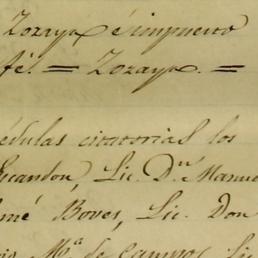 Zozaya é impuesto
fé. = Zozaya. =
édulas citatorias los
Escandon, Lic. D.n Manue
mé Boves, Lic. Don
M.a de Campos, Lic